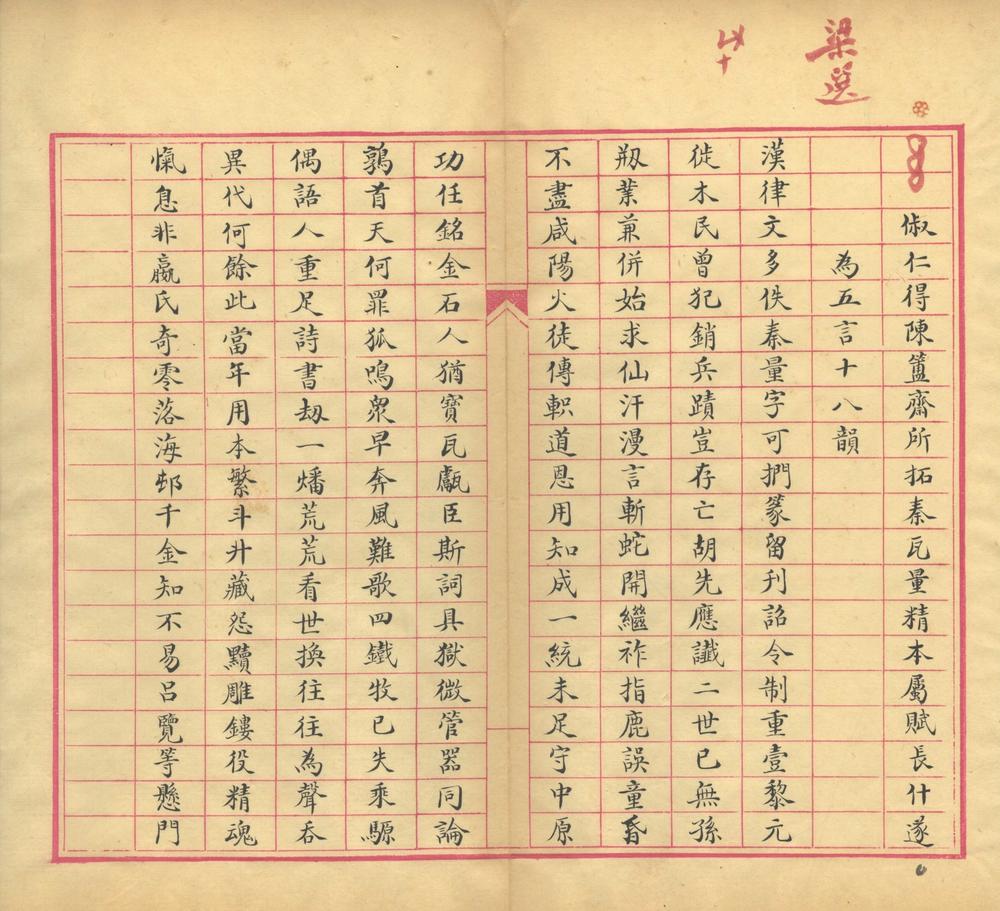 梁選
卌
俶仁得陳簠齋所拓秦瓦量精本屬賦長什遂
為五言十八韻
漢律文多佚秦量字可捫篆留刋詔令制重壹黎元
徙木民曾犯銷兵蹟豈存亡胡先應讖二世已無孫
剏業兼併始求仙汗漫言斬蛇開繼祚指鹿誤童昏
不盡咸陽火徒傳軹道恩用知成一統未足守中原
功任銘金石人猶寶瓦甗臣斯詞具獄微管器同論
鶉首天何罪狐鳴衆早奔風難歌四鐵牧已失乘騵
偶語人重足詩書劫一燔荒荒看世換往往為聲吞
異代何餘此當年用本繁斗升藏怨黷雕鏤役精魂
愾息非嬴氏奇零落海邨千金知不易呂覽等懸門